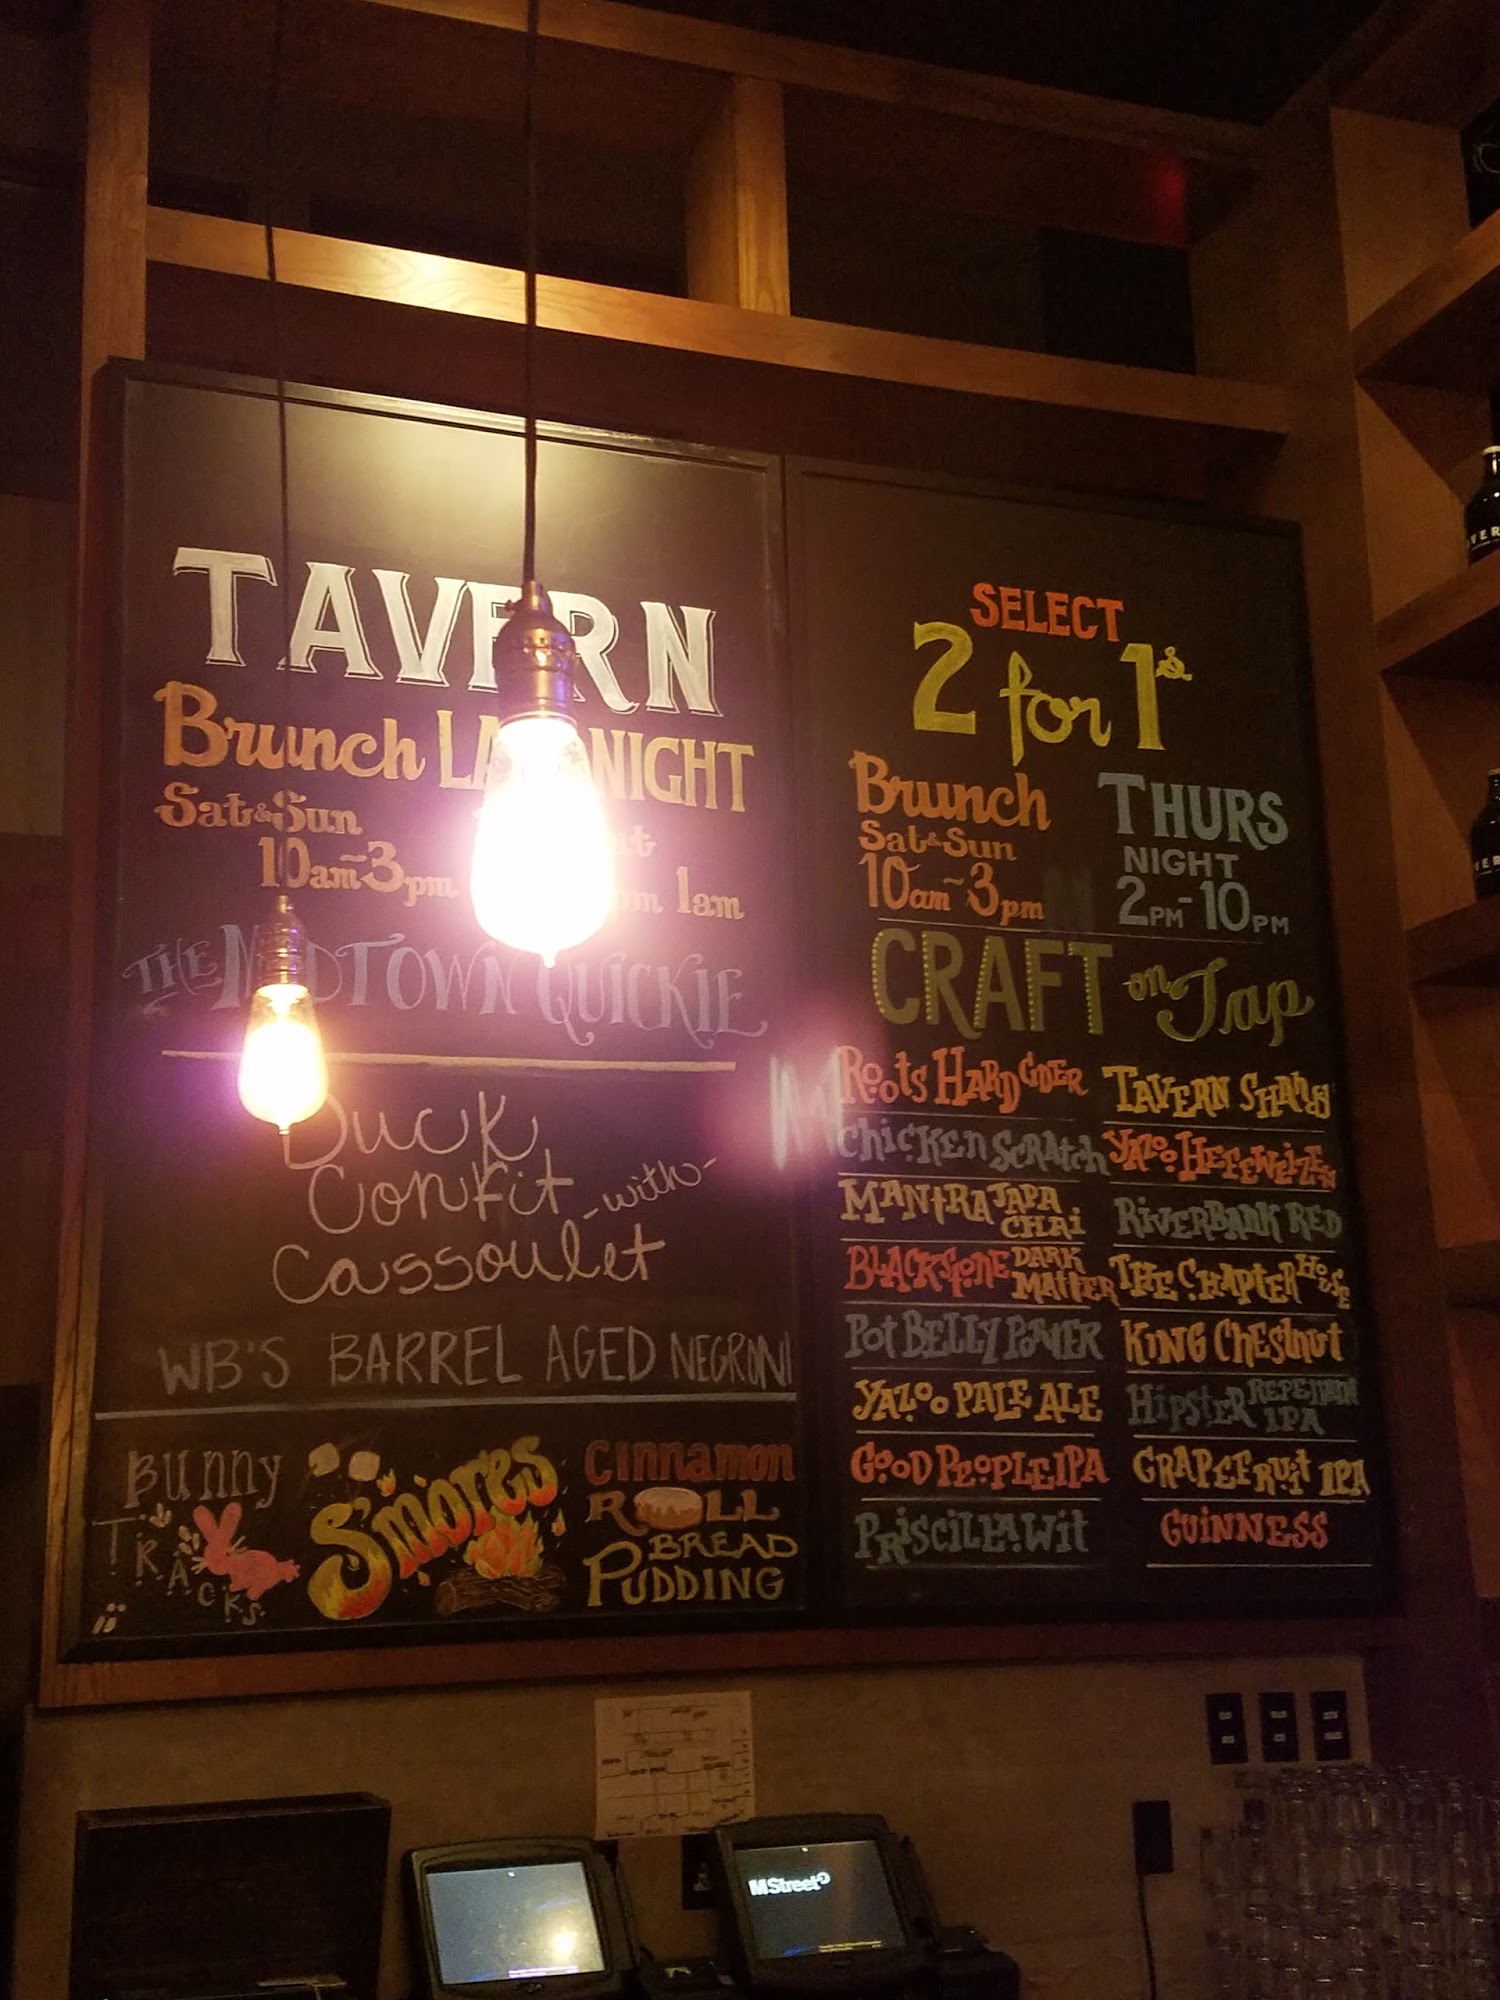 TAVERN
Brunch
Sat & Sun
10am-3pm
NIGHT
1am
THE MIDTOWN QUICKIE
Duck
Confit -with-
Cassoulet
WB'S BARREL AGED NEGRONI
BUNNY
TRACKS
S'mores
Cinnamon
ROLL
BREAD
PUDDING
SELECT
2 for 1s
Brunch
Sat & Sun
10am-3pm
THURS
NIGHT
2PM-10PM
CRAFT on Tap
Roots Hard Cider
Chicken Scratch
Mantra Japa Chai
Blackstone Dark Matter
Pot Belly Porter
Yazoo Pale Ale
Good People IPA
Priscilla Wit
Tavern Shandy
Yazoo Hefeweizen
Riverbank Red
The Chapter House
King Chestnut
Hipster Repellant IPA
Grapefruit IPA
Guinness
MStreet